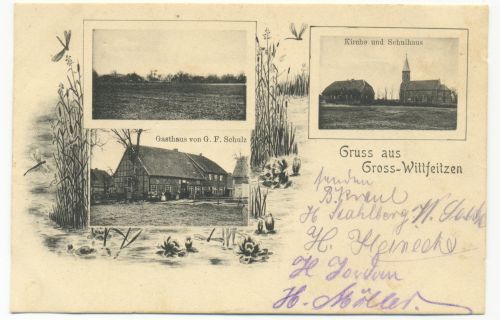 Kirche und Schulhaus
Gasthaus von G. F. Schulz
Gruss aus
Gross-Wittfeitzen
senden
H. Stahlberg W.
H. Heinecke
H. Jordan
H. Möller.